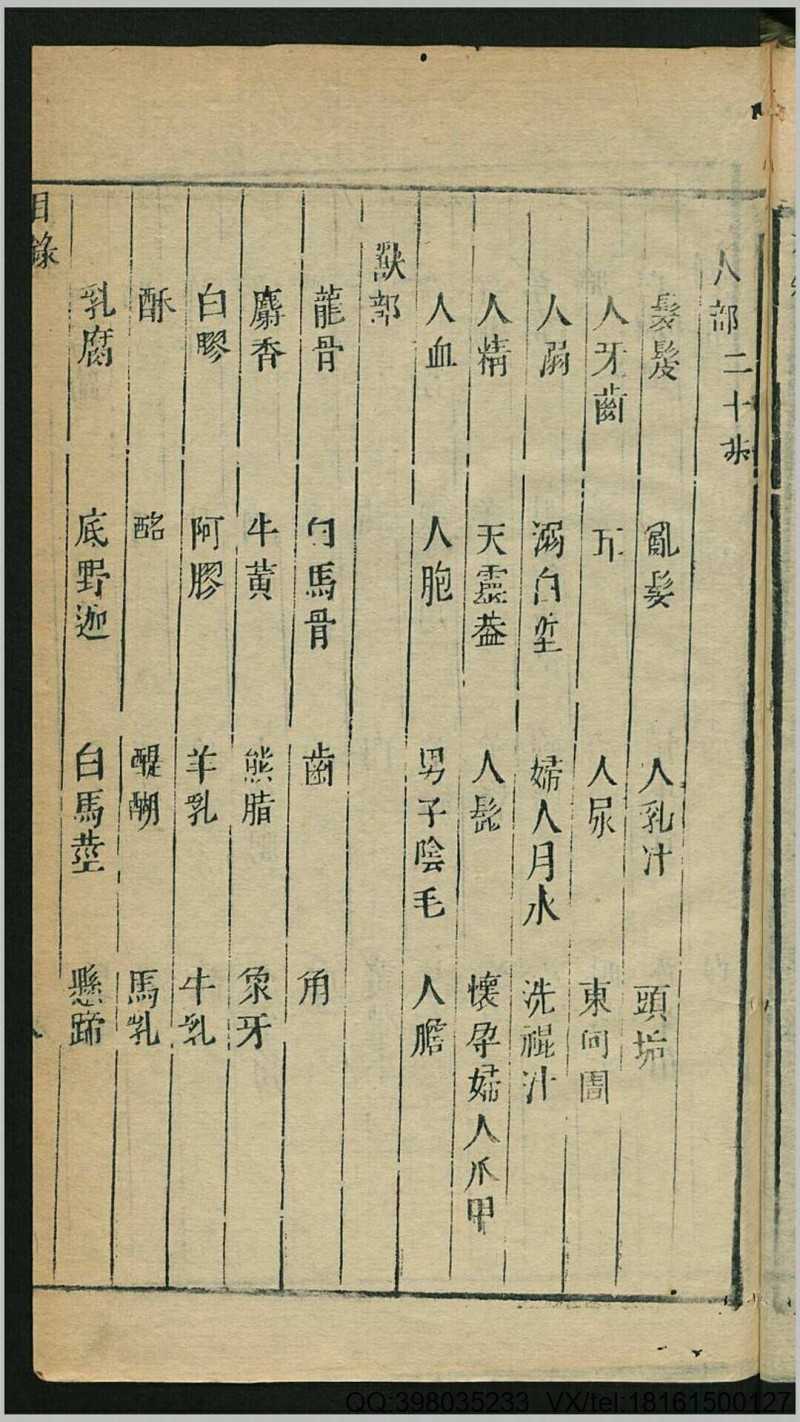 人部二十
髮髲 亂髮 人乳汁 頭垢
人牙齒 人尿 東向圊
人溺 溺白垽 婦人月水 洗裩汁
人精 天靈葢 人髭 懷孕婦人爪甲
人血 人胞 男子陰毛 人膽
獸部
龍骨 白馬骨 齒 角
麝香 牛黃 熊脂 象牙
白膠 阿膠 羊乳 牛乳
酥 酪 醍醐 馬乳
乳腐 底野迦 白馬莖 懸蹄
目錄
QQ:398035233 VX/tel:18161500127